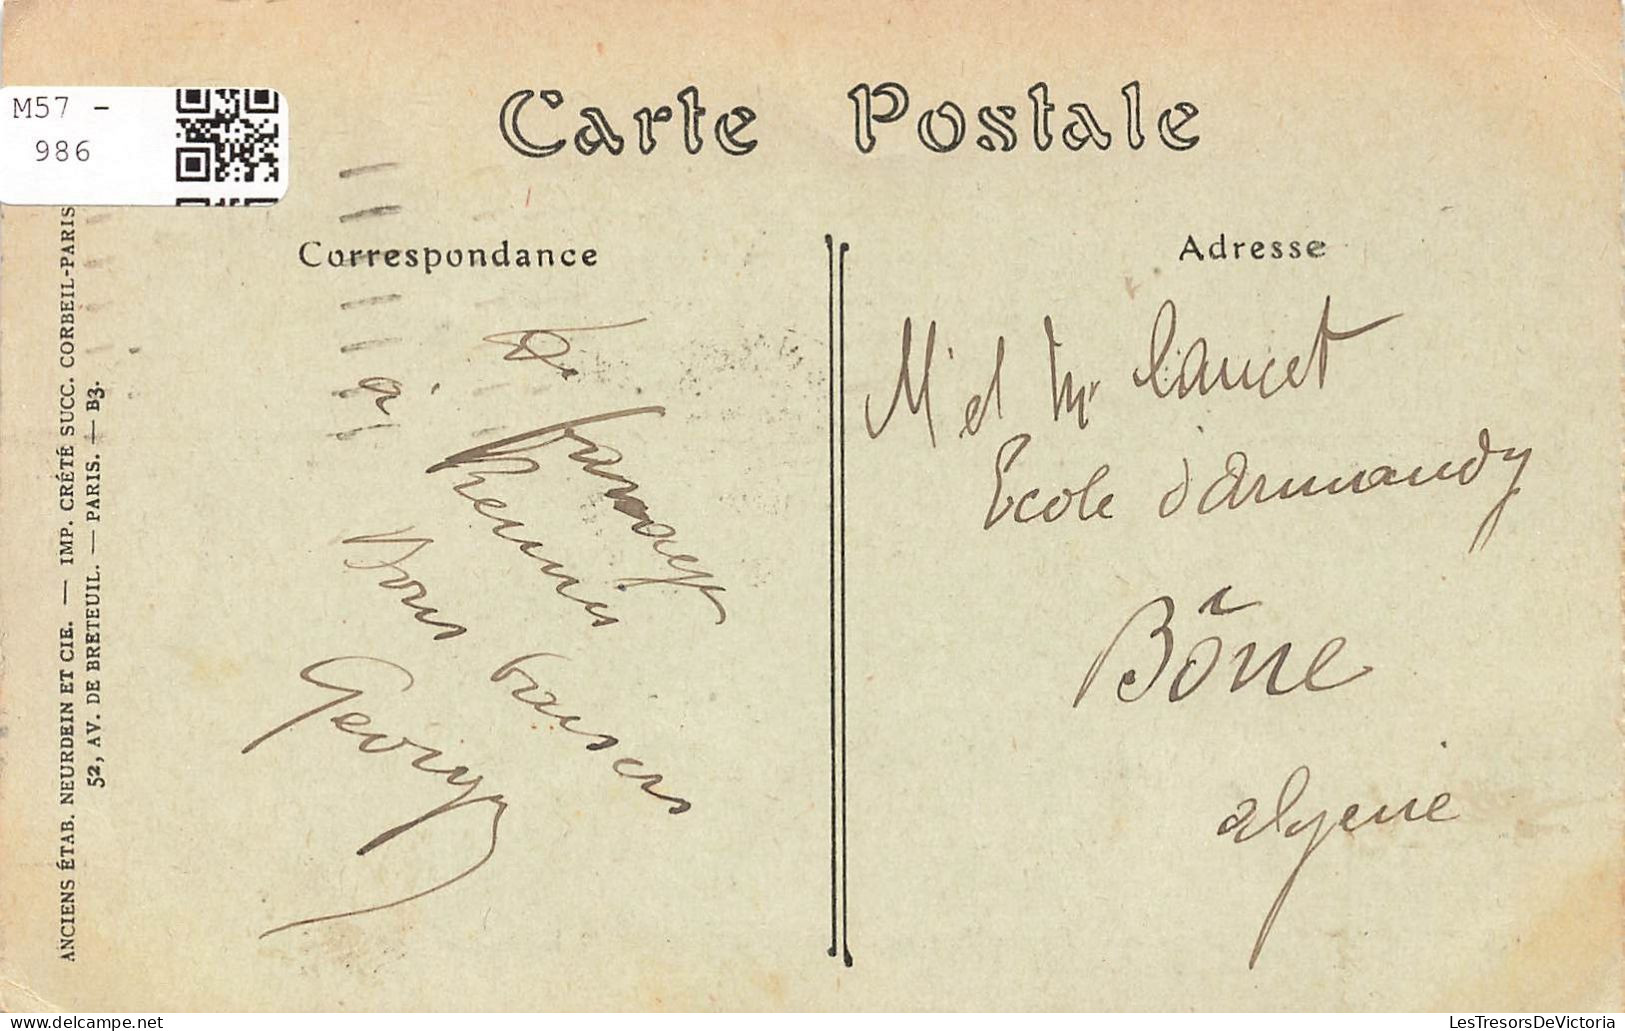 M57 -
986
Carte Postale
Correspondance
Adresse
ANCIENS ÉTAB. NEURDEIN ET CIE. — IMP. CRÉTÉ SUCC. CORBEIL-PARIS
52, AV. DE BRETEUIL. — PARIS. — B3.
à
Bons baisers
Georges
M et Mme Lancet
Ecole d'Armandy
Bône
algerie
LesTresorsDeVictoria